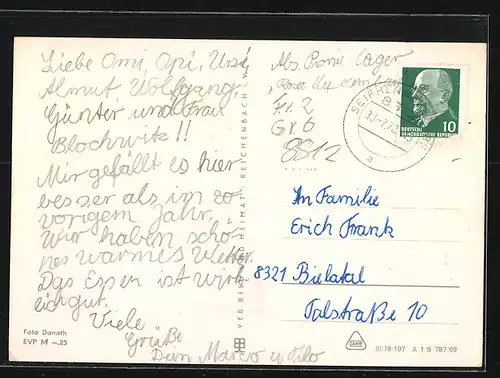 Liebe Omi, Opi, Ursi
Almut Wolfgang,
Günter und Frau
Blochwitz!!
Mir gefällt es hier
besser als im vo
vorigem Jahr.
Wir haben schö-
nes warmes Wetter.
Das Essen ist wirk
lich gut.
Viele
Grüße
Dein Marco u
Foto Donath
EVP M –.25
VEB BILD UND HEIMAT REICHENBACH I. V.
Abs. Pionierlager
"Rosa Luxemburg
Gr. 6
8812
SEIFHEN
a
10
DEUTSCHE
DEMOKRATISCHE REPUBLIK
An Familie
Erich Frank
8321 Bielatal
Talstraße 10
III/18/197 A 1 B 787/69